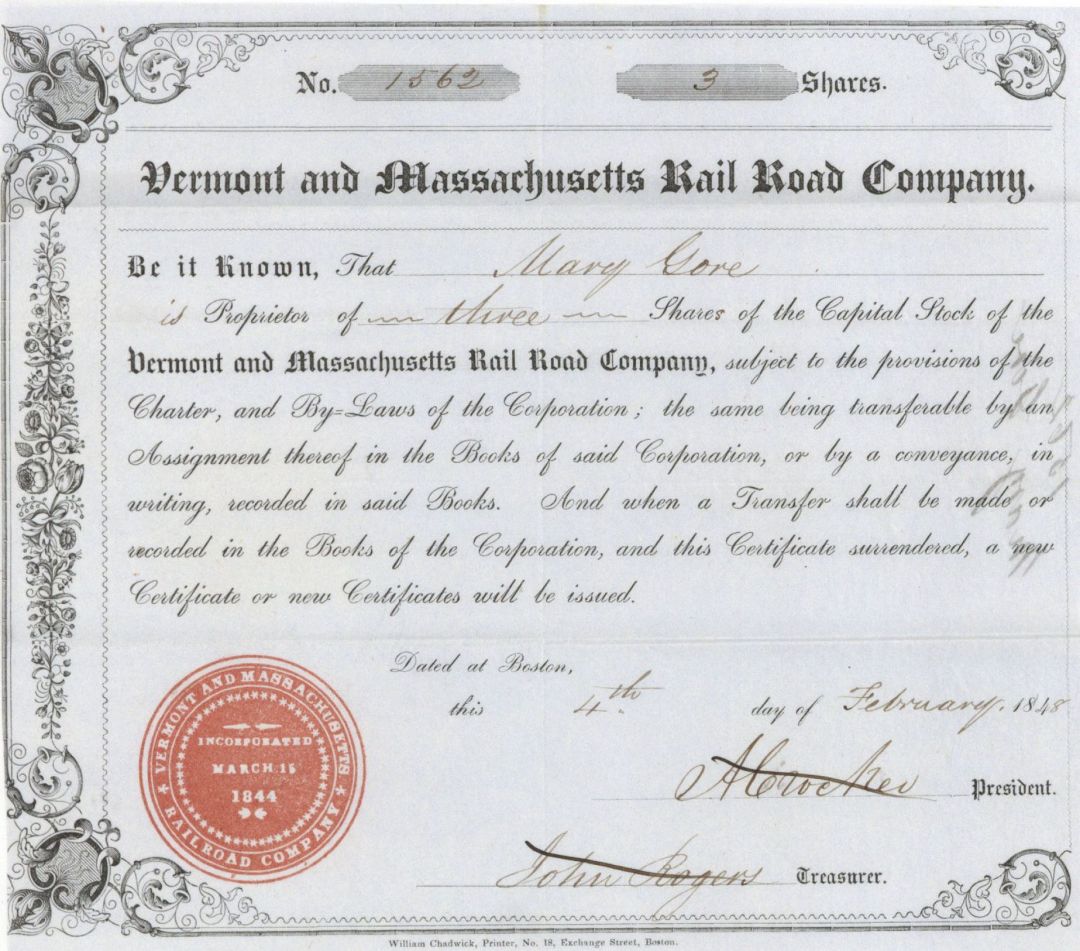 No. 1562 3 Shares.
Vermont and Massachusetts Rail Road Company.
Be it Known, That Mary Gore
is Proprietor of three Shares of the Capital Stock of the
Vermont and Massachusetts Rail Road Company, subject to the provisions of the
Charter, and By=Laws of the Corporation; the same being transferable by an
Assignment thereof in the Books of said Corporation, or by a conveyance, in
writing, recorded in said Books. And when a Transfer shall be made or
recorded in the Books of the Corporation, and this Certificate surrendered, a new
Certificate or new Certificates will be issued.
Dated at Boston,
this 4th. day of February. 1848
ACrocker President.
John Rogers Treasurer.
VERMONT AND MASSACHUSETTS
RAILROAD COMPANY
INCORPORATED
MARCH 15
1844
William Chadwick, Printer, No. 18, Exchange Street, Boston.